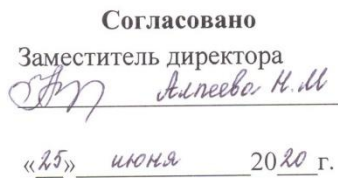 Согласовано
Заместитель директора
Алпеева Н.М
«25» июня 2020 г.